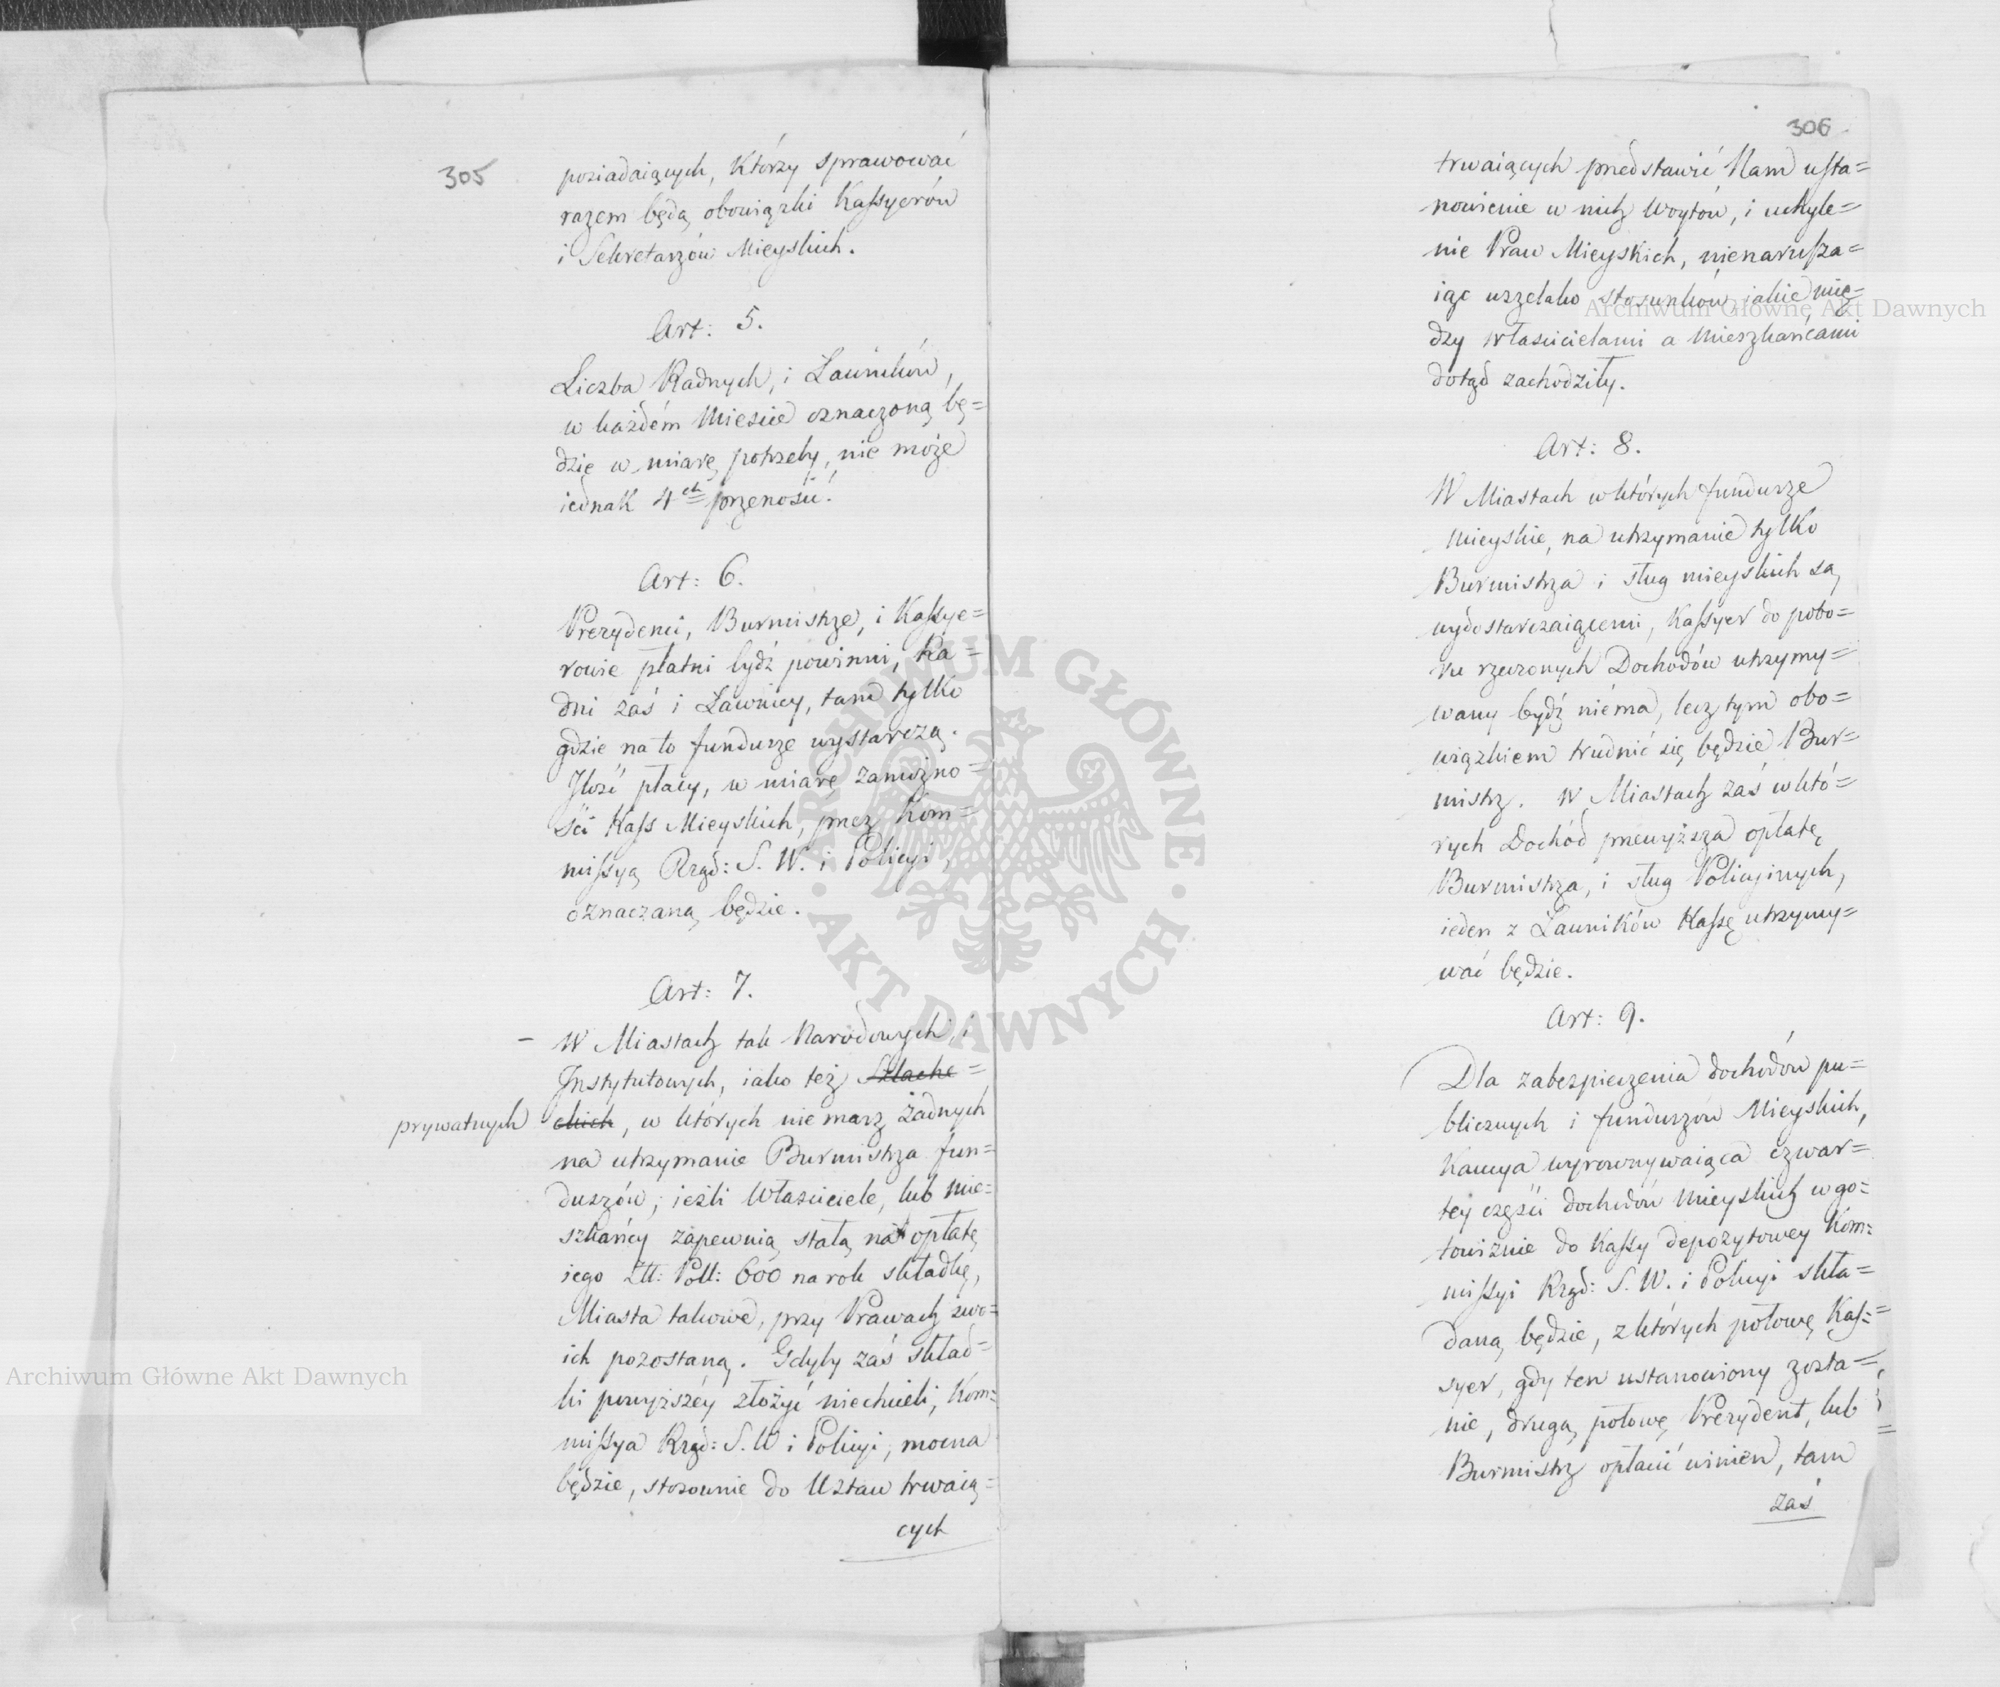 305
posiadaiących, którzy sprawować
razem będą obowiązki Kassyerów
i Sekretarzów Mieyskich.
Art: 5.
Liczba Radnych, i Ławników,
w każdém Mieście oznaczoną bę=
dzie w miarę potrzeby, nie może
iednak 4ch przenosić.
Art: 6.
Prezydenci, Burmistrze, i Kassye=
rowie płatni bydź powinni, Ra=
dni zaś i Ławnicy, tam tylko
gdzie na to fundusze wystarczą.
Ilość płacy, w miarę zamożno=
ści Kass Mieyskich, przez Kom=
missyą Rząd: S. W. i Policyi,
oznaczaną będzie.
Art: 7.
– W Miastach tak Narodowych, i
Instytutowych, iako też Szlache=
prywatnych ckich, w których niemasz żadnych
na utrzymanie Burmistrza fun=
duszów; ieżli Właściciele, lub mie=
szkańcy zapewnią stałą na opłatę
iego Złł: Poll: 600 na rok składkę,
Miasta takowe, przy Prawach swo=
ich pozostaną. Gdyby zaś skład=
ki powyższéy złożyć niechcieli, Kom=
missya Rząd: S. W i Policyi, mocna
będzie, stosownie do Ustaw trwaią=
cych
306
trwaiących przedstawić Nam usta=
nowienie w nich Woytów, i uchyle=
nie Praw Mieyskich, nienarusza=
iąc wszelako stosunków iakie mię=
dzy właścicielami a Mieszkańcami
dotąd zachodziły.
Art: 8.
W Miastach w których fundusze
mieyskie, na utrzymanie tylko
Burmistrza i sług mieyskich są
wydostarczaiącemi, Kassyer do pobo=
ru rzeczonych Dochodów utrzymy=
wany bydź niéma, lecz tym obo=
wiązkiem trudnić się będzie Bur=
mistrz. W Miastach zaś w któ=
rych Dochód przewyższa opłatę
Burmistrza, i sług Policyinych,
ieden z Ławników Kassę utrzymy=
wać będzie.
Art: 9.
Dla zabezpieczenia dochodów pu=
blicznych i funduszów Mieyskich,
Kaucya wyrownywaiąca czwar=
tey części dochodów Mieyskich w go=
towiznie do Kassy depozytowey Kom=
missyi Rząd: S. W. i Policyi skła=
daną będzie, z których połowę Kas=
syer, gdy ten ustanowiony zosta=
nie, drugą połowę Prezydent, lub
Burmistrz opłacić winien, tam
zaś
Archiwum Główne Akt Dawnych
Archiwum Główne Akt Dawnych
ARCHIWUM GŁÓWNE
AKT DAWNYCH